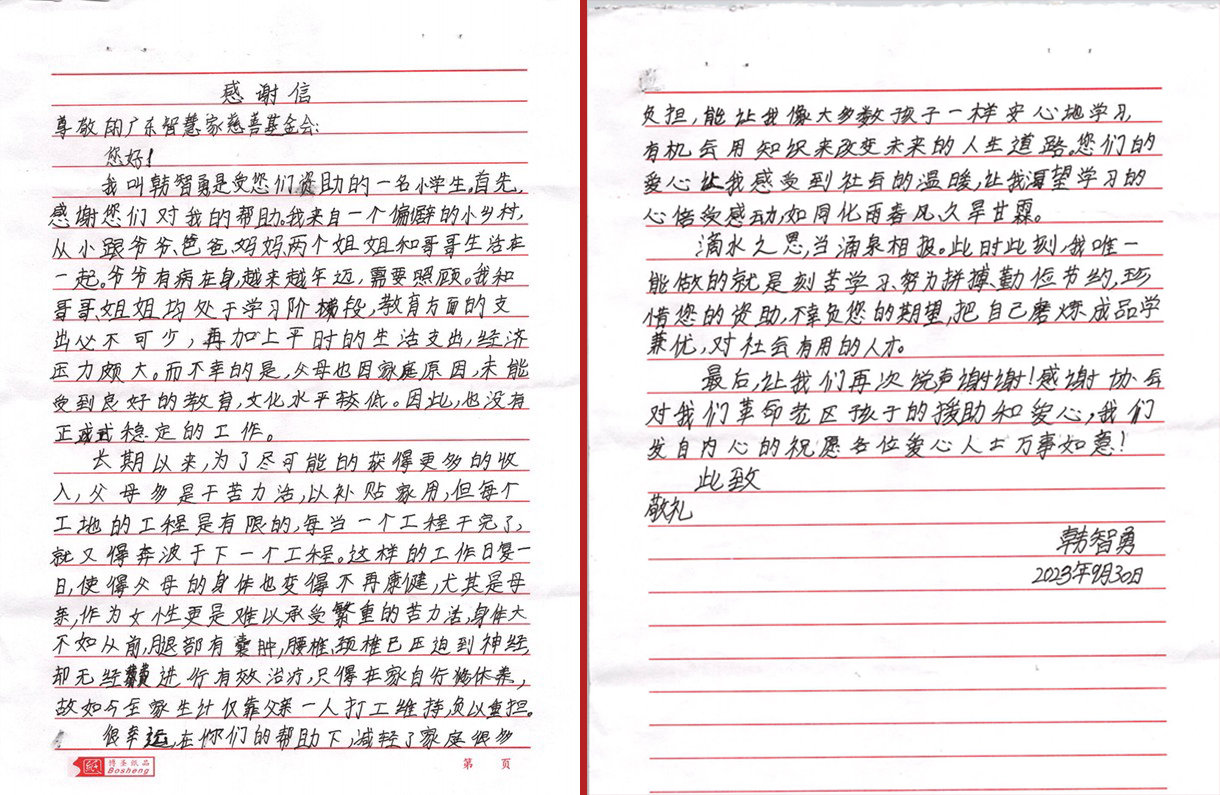 感谢信
尊敬的广东智慧家慈善基金会:
您好!
我叫韩智勇是受您们资助的一名小学生。首先,
感谢您们对我的帮助。我来自一个偏僻的小乡村,
从小跟爷爷、爸爸、妈妈、两个姐姐和哥哥生活在
一起。爷爷有病在身,越来越年迈,需要照顾。我和
哥哥、姐姐均处于学习阶梯段,教育方面的支
出必不可少,再加上平时的生活支出,经济
压力颇大。而不幸的是,父母也因家庭原因,未能
受到良好的教育,文化水平较低。因此,也没有
正式稳定的工作。
长期以来,为了尽可能的获得更多的收
入,父母多是干苦力活,以补贴家用,但每个
工地的工程是有限的,每当一个工程干完了,
就又得奔波于下一个工程。这样的工作日复一
日,使得父母的身体也变得不再康健,尤其是母
亲,作为女性更是难以承受繁重的苦力活,身体大
不如从前,腿部有囊肿,腰椎、颈椎已压迫到神经,
却无经费进行有效治疗,只得在家自行修休养,
故如今全家生计仅靠父亲一人打工维持,负以重担。
很幸运,在你们的帮助下,减轻了家庭很多
博圣纸品
Bosheng
第 页
负担,能让我像大多数孩子一样安心地学习,
有机会用知识来改变未来的人生道路。您们的
爱心让我感受到社会的温暖,让我渴望学习的
心倍受感动,如同化雨春风、久旱甘霖。
滴水之恩,当涌泉相报。此时此刻,我唯一
能做的就是刻苦学习、努力拼搏、勤俭节约,珍
惜您的资助,不辜负您的期望,把自己磨炼成品学
兼优,对社会有用的人才。
最后,让我们再次说声谢谢!感谢协会
对我们革命老区孩子的援助和爱心,我们
发自内心的祝愿各位爱心人士万事如意!
此致
敬礼
韩智勇
2023年9月30日